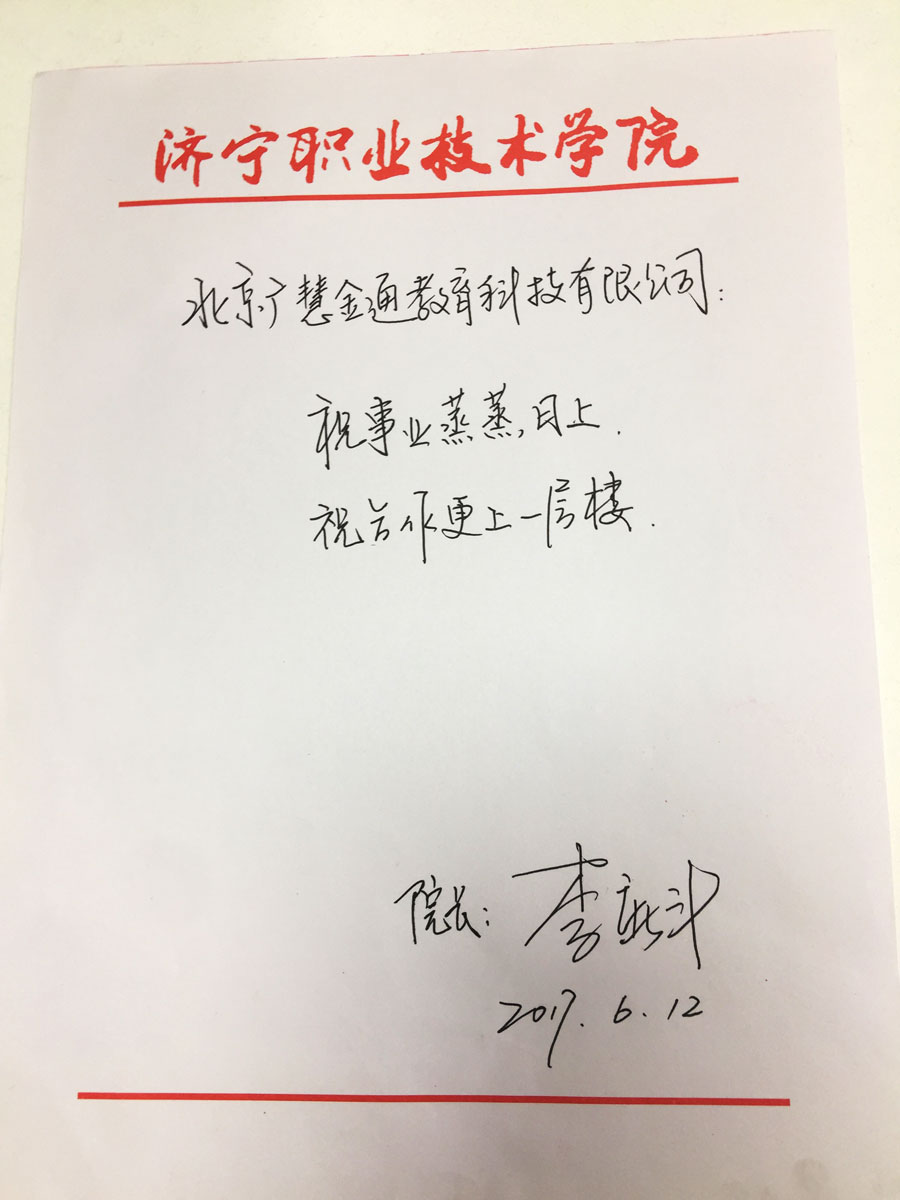 济宁职业技术学院
北京广慧金通教育科技有限公司：
祝事业蒸蒸日上.
祝合作更上一层楼.
院长：李
2017.6.12